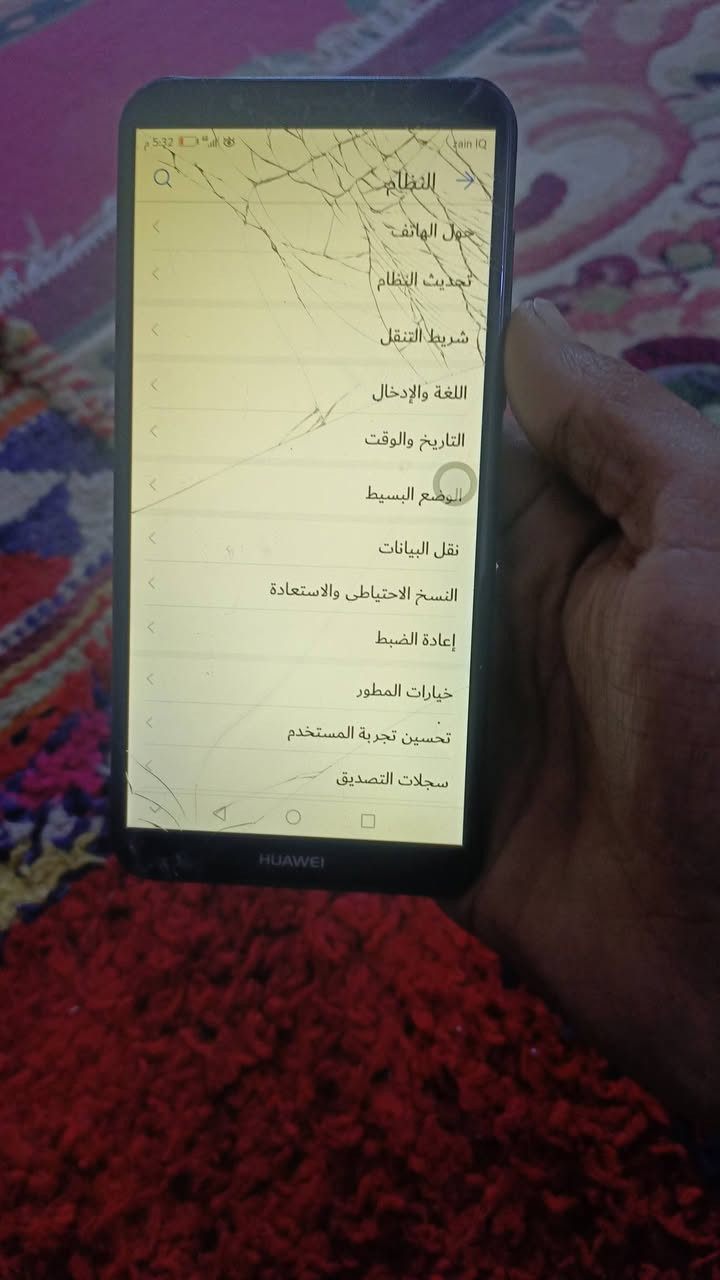 zain IQ
5:32 م
النظام
حول الهاتف
تحديث النظام
شريط التنقل
اللغة والإدخال
التاريخ والوقت
الوضع البسيط
نقل البيانات
النسخ الاحتياطي والاستعادة
إعادة الضبط
خيارات المطور
تحسين تجربة المستخدم
سجلات التصديق
HUAWEI